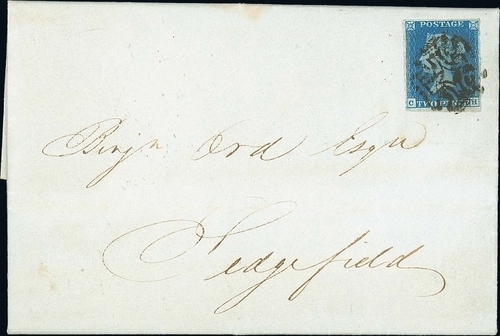 POSTAGE
TWO PENCE
C H
Binjn Ord Esqr
Sedgefield